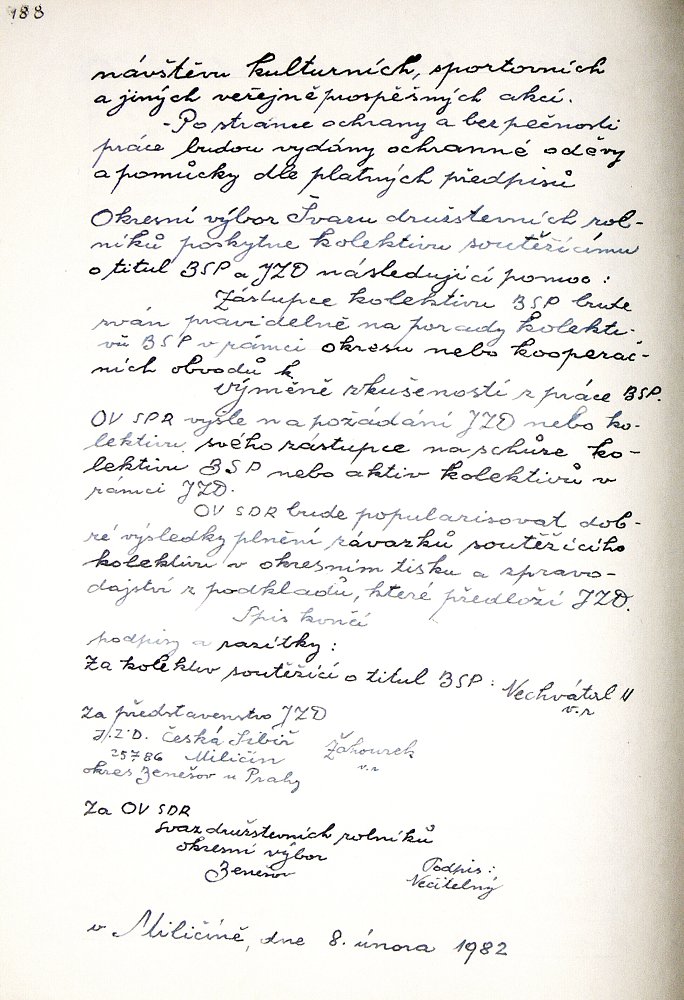 188
návštěvu kulturních, sportovních
a jiných veřejně prospěšných akcí.
-Po stránce ochrany a bezpečnosti
práce budou vydány ochranné oděvy
a pomůcky dle platných předpisů
Okresní výbor Švazu družstevních rol-
níků poskytne kolektivu soutěžícímu
o titul BSP a JZD následující pomoc:
Zástupce kolektivu BSP bude
zván pravidelně na porady kolekti-
vů BSP v rámci okresu nebo kooperač-
ních obvodů k
výměně zkušeností z práce BSP.
OV SDR vyšle na požádání JZD nebo ko-
lektivu svého zástupce na schůze ko-
lektivu BSP nebo aktiv kolektivů v
rámci JZD.
OV SDR bude popularisovat dob-
ré výsledky plnění závazků soutěžícího
kolektivu v okresním tisku a zpravo-
dajství z podkladů, které předloží JZD.
Spis končí
podpisy a razítky:
Za kolektiv soutěžící o titul BSP: Nechvátal
v.r
Za představenstvo JZD
J.Z.D. Česká Sibiř
257 86 Miličín
okres Benešov u Prahy
Žahourek
v.r
Za OV SDR
Svaz družstevních rolníků
okresní výbor
Benešov
Podpis:
Nečitelný
v Miličíně, dne 8. února 1982